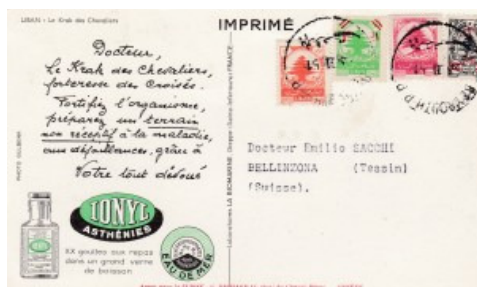 LIBAN - Le Krak des Chevaliers
IMPRIMÉ
Docteur,
Le Krak des Chevaliers,
forteresse des Croisés.
Fortifiez l'organisme,
préparez un terrain
non réceptif à la maladie,
aux défaillances, grâce à
Votre tout dévoué
IONYL
ASTHÉNIES
XX gouttes aux repas
dans un grand verre
de boisson
EAU DE MER
Laboratoires LA BIOMARINE
Docteur Emilio SACCHI
BELLINZONA (Tessin)
(Suisse).